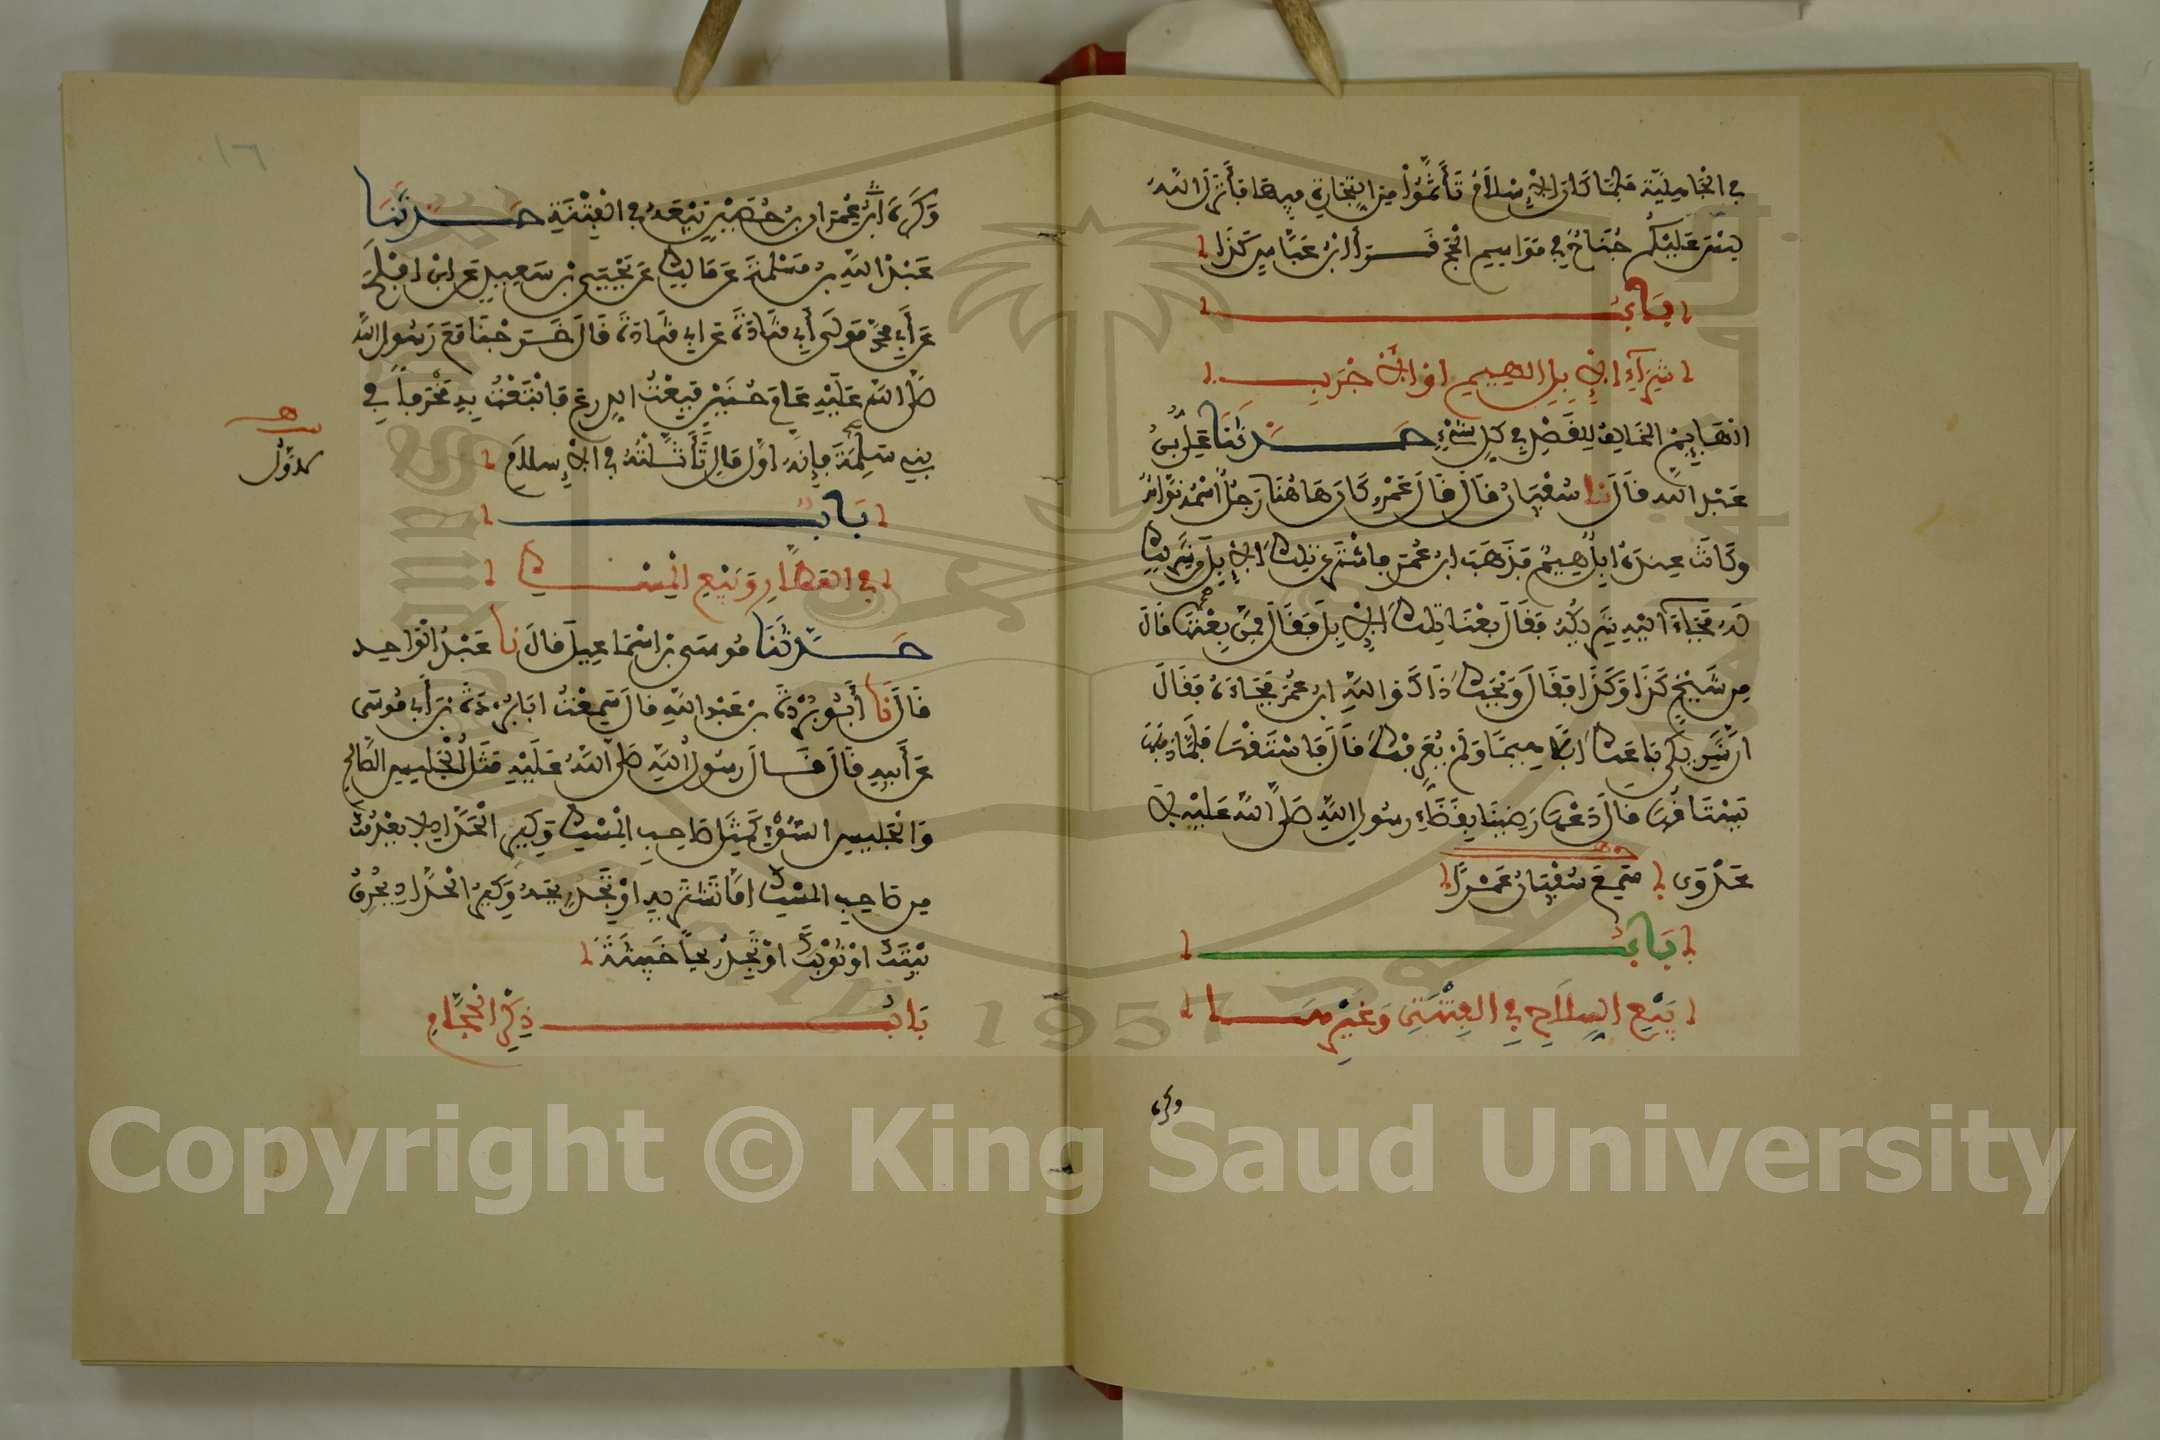 في الجاهلية فلما كان الإسلام تأثموا من التجارة فيها فأنزل الله
ليس عليكم جناح في مواسم الحج قرأ ابن عباس كذا
باب
شراء الإبل الهيم او الأجرب
الهايم المخالف للقصد في كل شيء حدثنا علي بن
عبد الله قال نا سفيان قال قال عمرو كان هاهنا رجل اسمه نواس
وكانت عنده ابل هيم فذهب ابن عمر فاشترى تلك الإبل من شريك
له فجاء اليه شريكه فقال بعنا تلك الإبل فقال ممن بعتها قال
من شيخ كذا وكذا فقال ويحك ذاك والله ابن عمر فجاءه فقال
ان شريكي باعك ابلا هيما ولم يعرفك قال فاستقها فلما ذهب
يستاقها قال دعها رضينا بقضاء رسول الله صلى الله عليه لا
عدوى سمع سفيان عمرا
باب
بيع السلاح في الفتنة وغيرها
وكره
١٦
وكره ابن عمران بن حصين بيعه في الفتنة حدثنا
عبد الله بن مسلمة عن مالك عن يحيى بن سعيد عن ابن افلح
عن أبي محمد مولى أبي قتادة عن ابي قتادة قال خرجنا مع رسول الله
صلى الله عليه عام حنين فبعت الدرع فابتعت به مخرفا في
بني سلمة فإنه اول مال تأثلته في الإسلام
باب
في العطار وبيع المسك
حدثنا موسى بن اسماعيل قال نا عبد الواحد
قال نا أبو بردة بن عبد الله قال سمعت ابا بردة بن أبي موسى
عن أبيه قال قال رسول الله صلى الله عليه مثل الجليس الصالح
والجليس السوء كمثل صاحب المسك وكير الحداد لا يعدمك
من صاحب المسك اما تشتريه او تجد ريحه وكير الحداد يحرق
بيتك او ثوبك او تجد ريحا خبيثة
باب ذكر الحجام
Copyright © King Saud University
1957